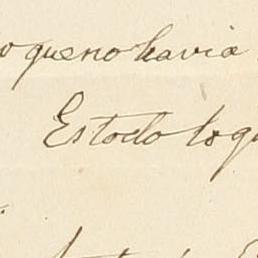 o que no havia
Es todo lo qu